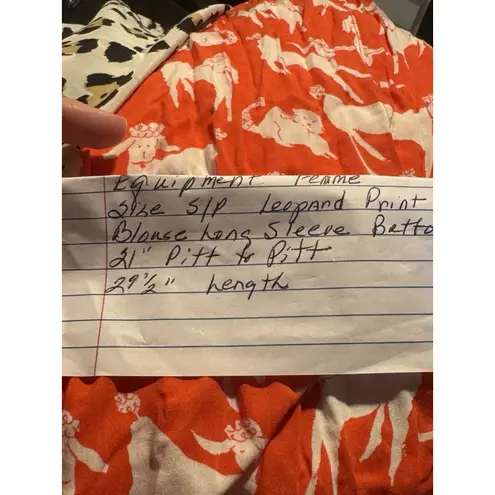 Equipment Femme
Size S/P Leopard Print
Blouse Long Sleeve Butto
21" Pitt to Pitt
29½" Length